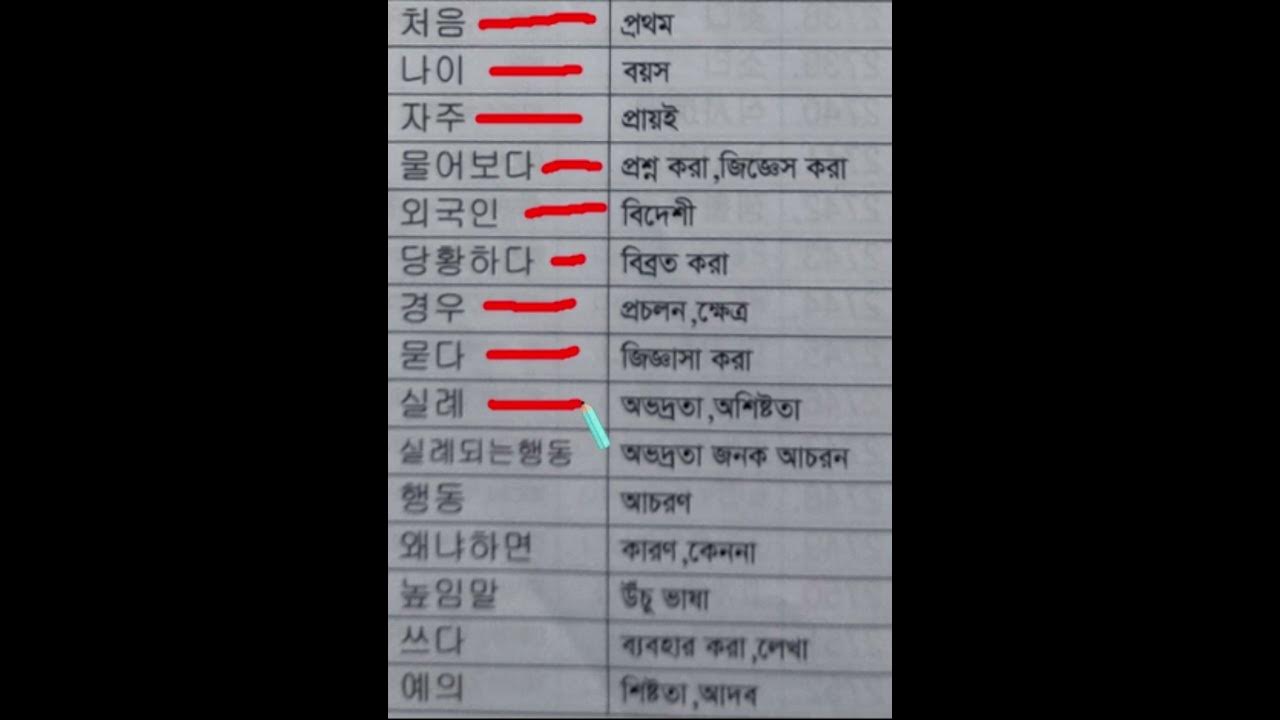 처음 প্রথম
나이 বয়স
자주 প্রায়ই
물어보다 প্রশ্ন করা ,জিজ্ঞেস করা
외국인 বিদেশী
당황하다 বিব্রত করা
경우 প্রচলন ,ক্ষেত্র
묻다 জিজ্ঞাসা করা
실례 অভদ্রতা ,অশিষ্টতা
실례되는행동 অভদ্রতা জনক আচরন
행동 আচরণ
왜냐하면 কারণ ,কেননা
높임말 উঁচু ভাষা
쓰다 ব্যবহার করা ,লেখা
예의 শিষ্টতা ,আদব